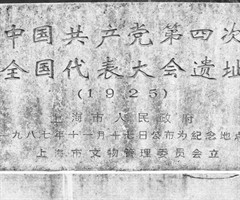 中国共产党第四次
全国代表大会遗址
(1925)
上海市人民政府
一九八七年十一月十七日公布为纪念地点
上海市文物管理委员会立